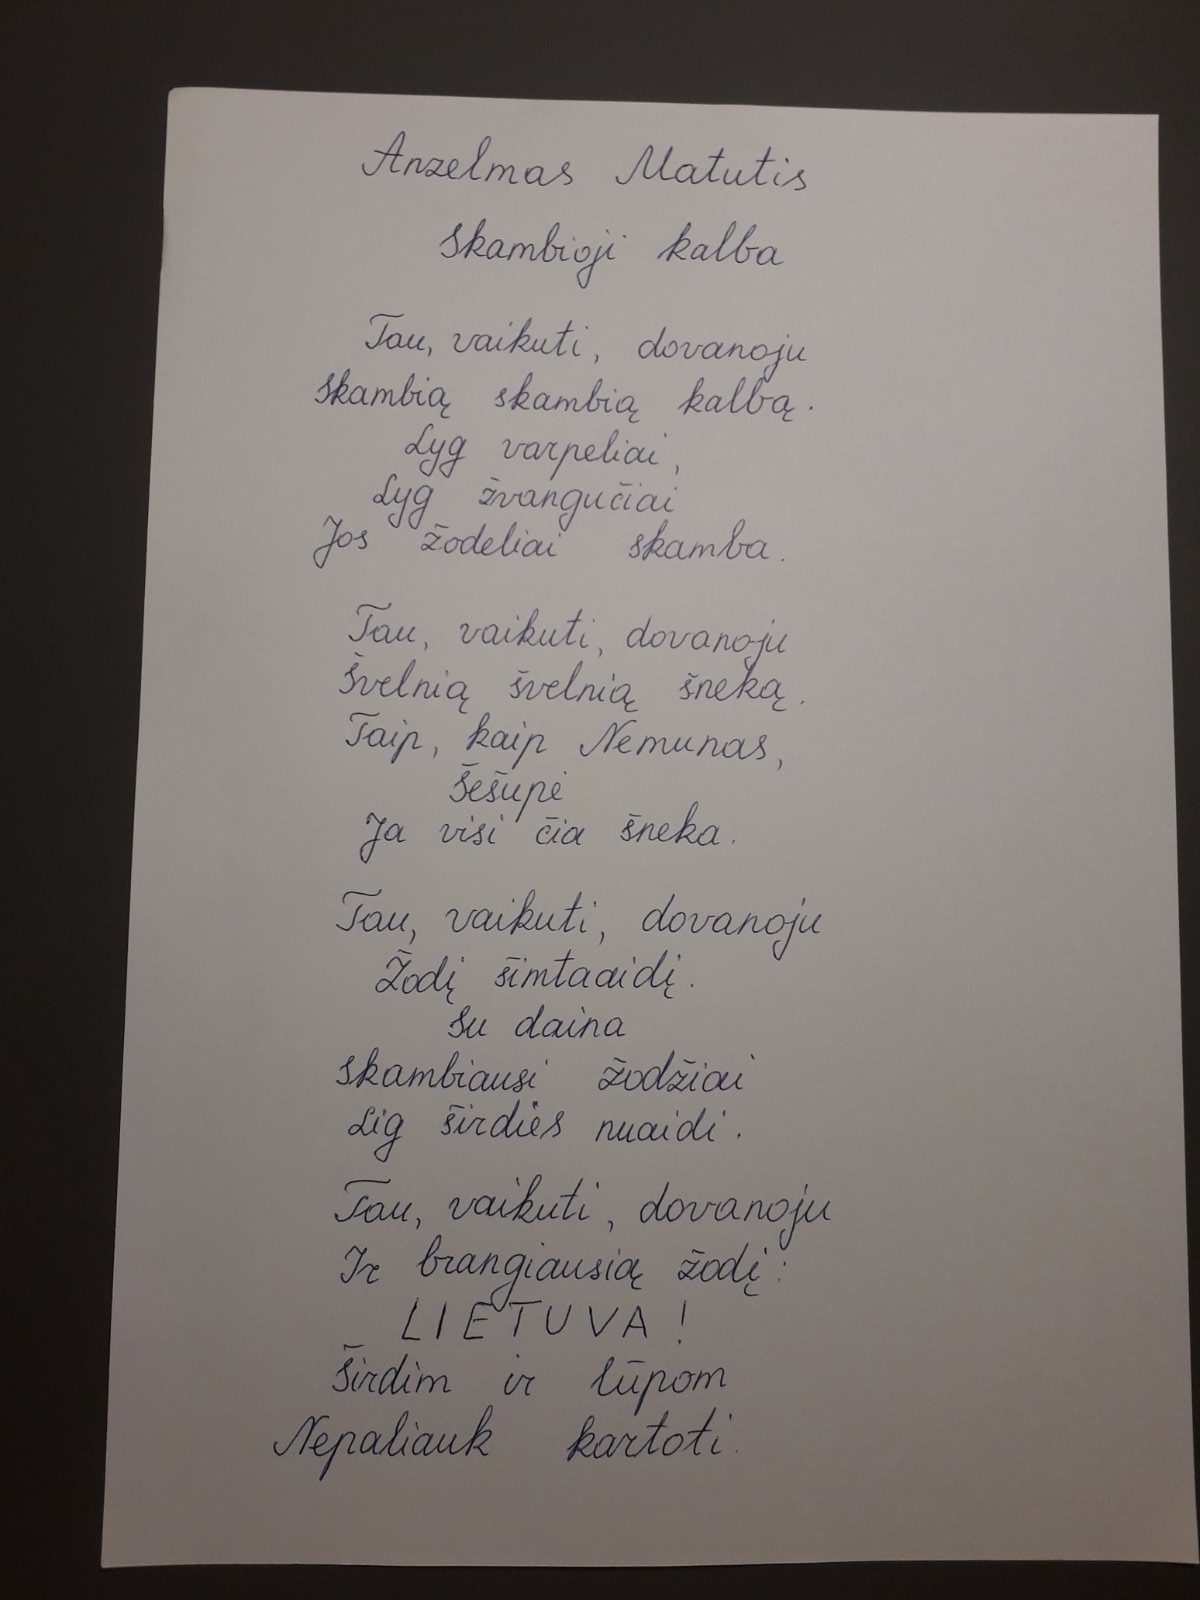 Anzelmas Matutis
Skambioji kalba
Tau, vaikuti, dovanoju
Skambią skambią kalbą.
Lyg varpeliai,
Lyg žvangučiai
Jos žodeliai skamba.
Tau, vaikuti, dovanoju
Švelnią švelnią šneką.
Taip, kaip Nemunas,
Šešupė
Ja visi čia šneka.
Tau, vaikuti, dovanoju
Žodį šimtaaidį.
Su daina
Skambiausi žodžiai
Lig širdies nuaidi.
Tau, vaikuti, dovanoju
Ir brangiausią žodį:
LIETUVA!
Širdim ir lūpom
Nepaliauk kartoti.